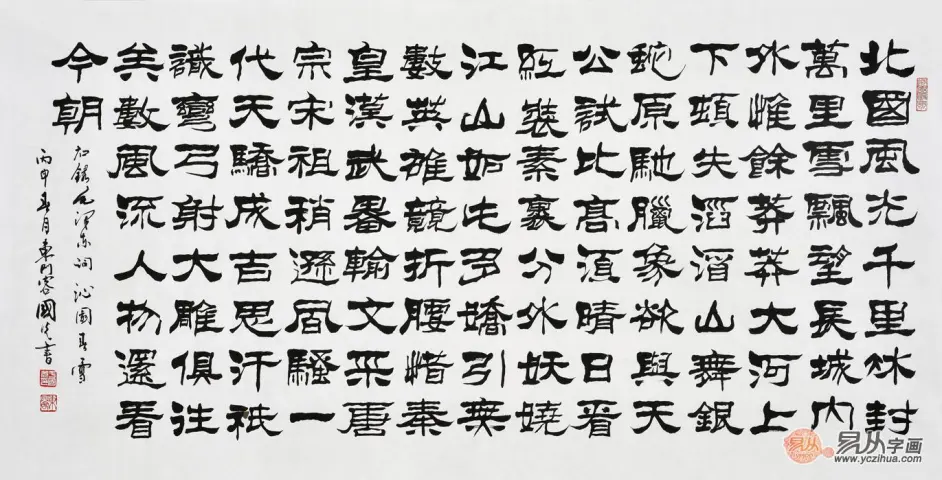 北國風光千里冰封
萬里雪飄望長城內
外惟餘莽莽大河上
下頓失滔滔山舞銀
蛇原馳臘象欲與天
公試比高須晴日看
紅裝素裹分外妖嬈
江山如此多嬌引無
數英雄競折腰惜秦
皇漢武畧輸文采唐
宗宋祖稍遜風騷一
代天驕成吉思汗祇
識彎弓射大雕俱往
矣數風流人物還看
今朝
右錄毛澤東詞沁園春雪
丙申春月東門客國書
易从字画
www.yczihua.com